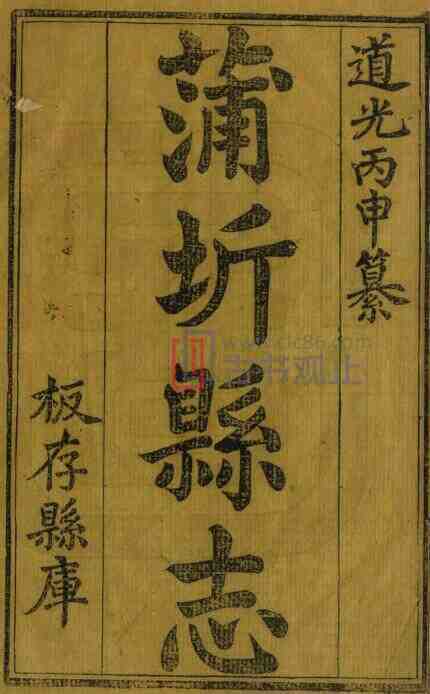 道光丙申纂
蒲圻縣志
板存縣庫
www.clc86.com
古书观止